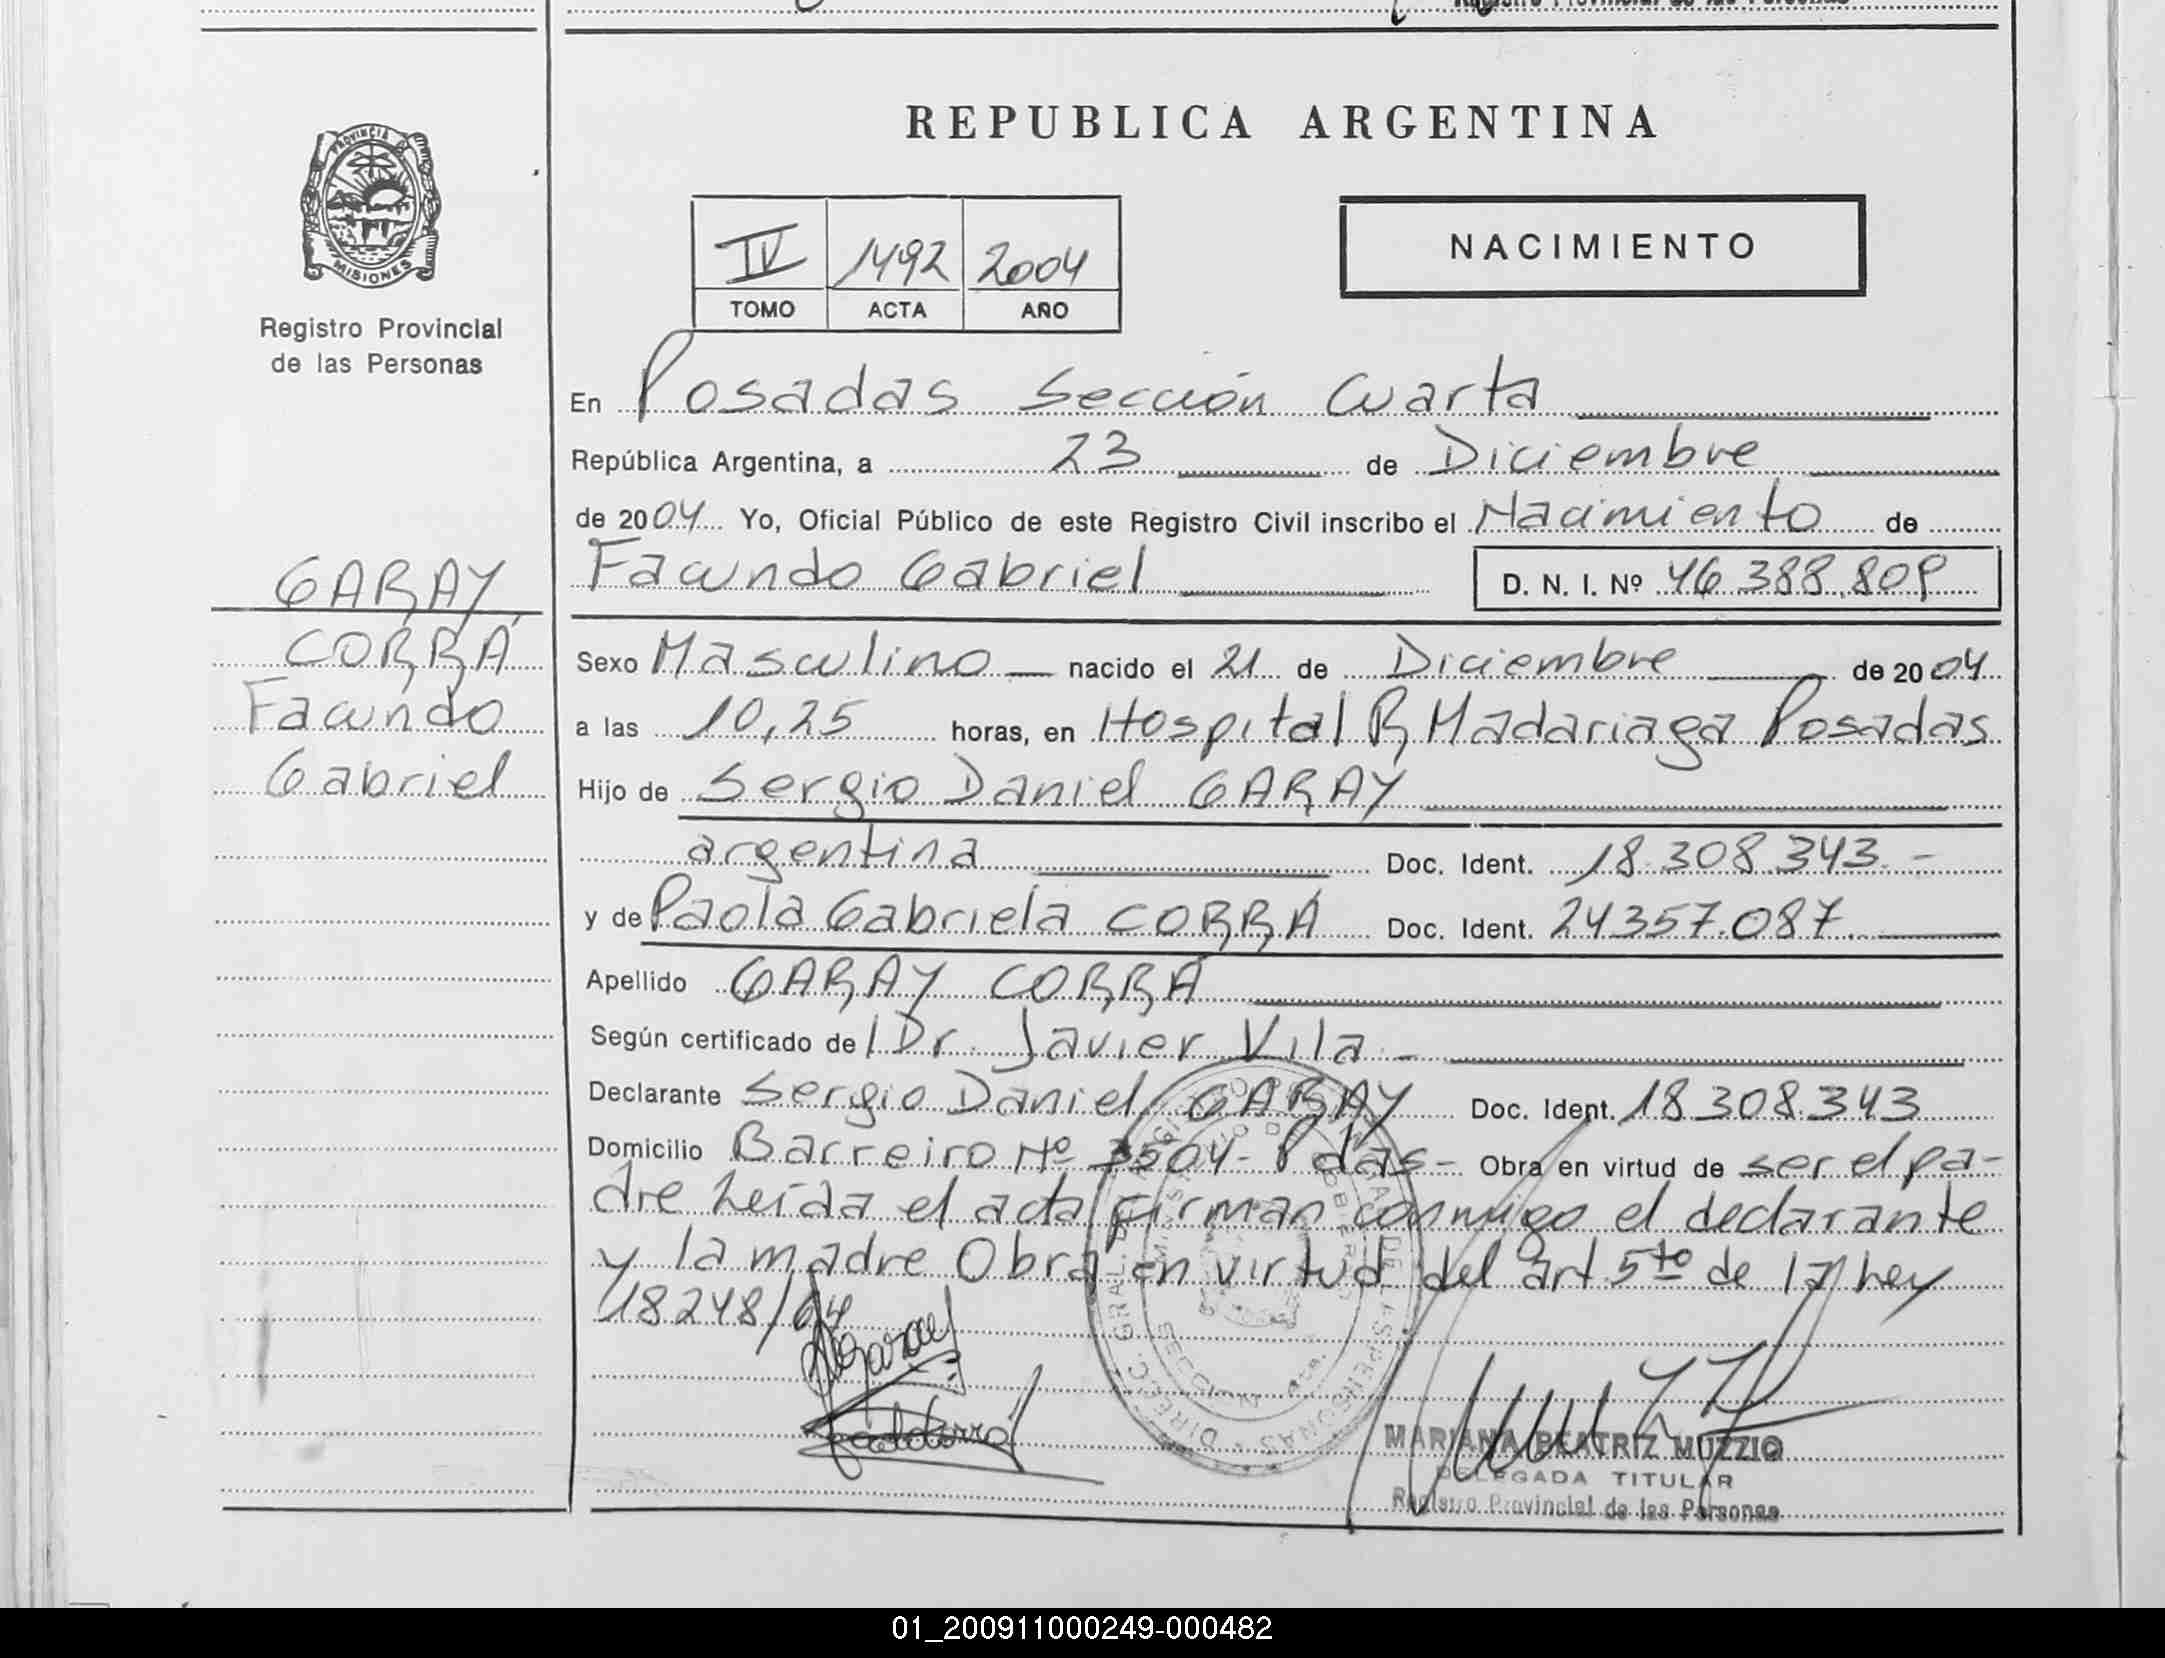 Registro Provincial de las Personas
REPUBLICA ARGENTINA
PROVINCIA DE
MISIONES
Registro Provincial
de las Personas
IV 1492 2004
TOMO ACTA AÑO
NACIMIENTO
En Posadas Sección Cuarta
República Argentina, a 23 de Diciembre
de 2004 Yo, Oficial Público de este Registro Civil inscribo el Nacimiento de
Facundo Gabriel D. N. I. Nº 46.388.809
GARAY
CORRÁ
Facundo
Gabriel
Sexo Masculino nacido el 21 de Diciembre de 2004
a las 10,25 horas, en Hospital R Madariaga Posadas
Hijo de Sergio Daniel GARAY
argentina Doc. Ident. 18.308.343.-
y de Paola Gabriela CORRÁ Doc. Ident. 24357.087.
Apellido GARAY CORRÁ
Según certificado del Dr. Javier Vila.-
Declarante Sergio Daniel GARAY Doc. Ident. 18 308.343
Domicilio Barreiro Nº 3504- Pdas- Obra en virtud de ser el pa-
dre Leída el acta firman conmigo el declarante
y la madre Obra en virtud del art 5to de la Ley
18248/64
MARIANA BEATRIZ MUZZIO
DELEGADA TITULAR
Registro Provincial de las Personas
01_200911000249-000482